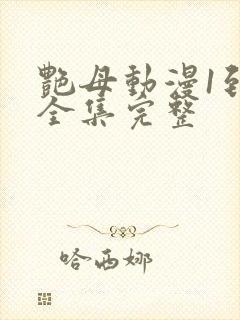 艷母動漫1到
全集完整
哈西娜